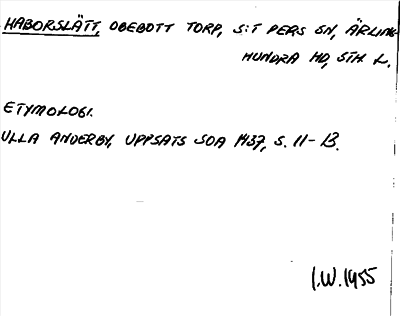 HABORSLÄTT, OBEBOTT TORP, S:T PERS SN, ÄRLING-
HUNDRA HD, STH L.
ETYMOLOGI.
ULLA ANDERBY, UPPSATS SOA 1437, S. 11-13.
I.W. 1955